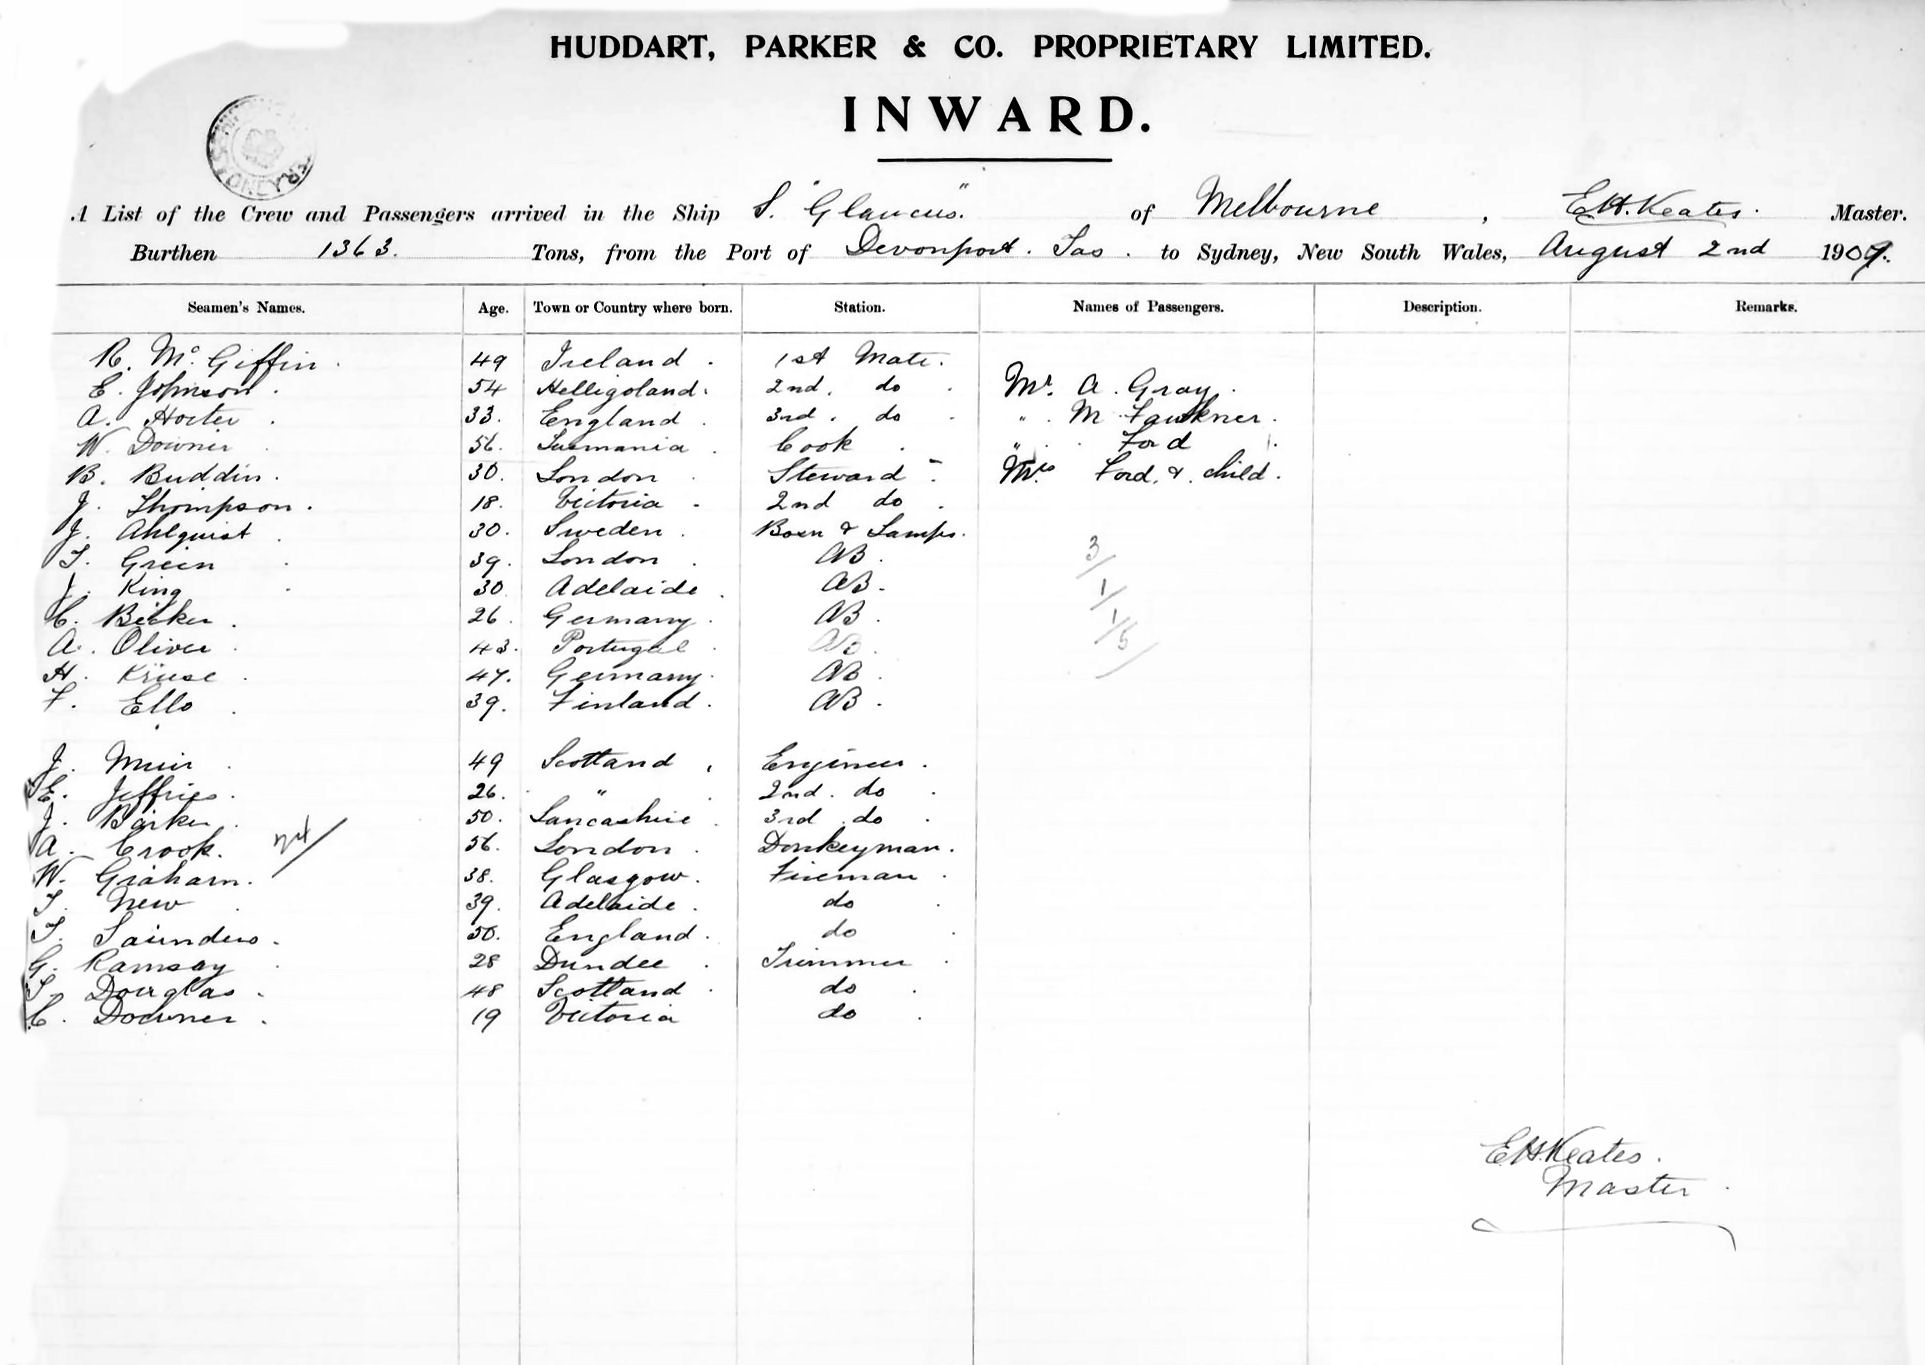 HUDDART, PARKER & CO. PROPRIETARY LIMITED.
INWARD.
A List of the Crew and Passengers arrived in the Ship S. "Glaucus" of Melbourne, E.H. Keates. Master.
Burthen 1363. Tons, from the Port of Devonport. Tas. to Sydney, New South Wales, August 2nd 1909.
Seamen's Names. Age. Town or Country where born. Station. Names of Passengers. Description. Remarks.
R. McGiffin. 49 Ireland. 1st Mate.
E. Johnson. 54 Helligoland. 2nd. do. Mr. A. Gray.
A. Hocter. 33. England. 3rd. do. " M Faulkner.
W. Downer. 56. Tasmania. Cook. " Ford
B. Buddin. 30. London. Steward. Mrs. Ford. & child.
J. Thompson. 18. Victoria. 2nd do.
J. Ahlquist. 30. Sweden. Bosn & Lamps.
T. Green. 39. London. AB.
J. King. 30 Adelaide. AB.
C. Becker. 26. Germany. AB.
A. Oliver. 43. Portugal. AB.
H. Kruse. 47. Germany. AB.
F. Ello. 39. Finland. AB.
J. Muir. 49 Scotland. Engineer.
E. Jeffries. 26. " 2nd. do.
J. Barker. 50. Lancashire. 3rd do.
A. Crook. 24/ 56. London. Donkeyman.
W. Graham. 38. Glasgow. Fireman.
T. New. 39. Adelaide. do.
T. Saunders. 50. England. do.
G. Ramsay. 28 Dundee. Trimmer.
T. Douglas. 48 Scotland. do.
C. Downer. 19 Victoria do.
3/
1/
1/5/
E.H. Keates.
Master.